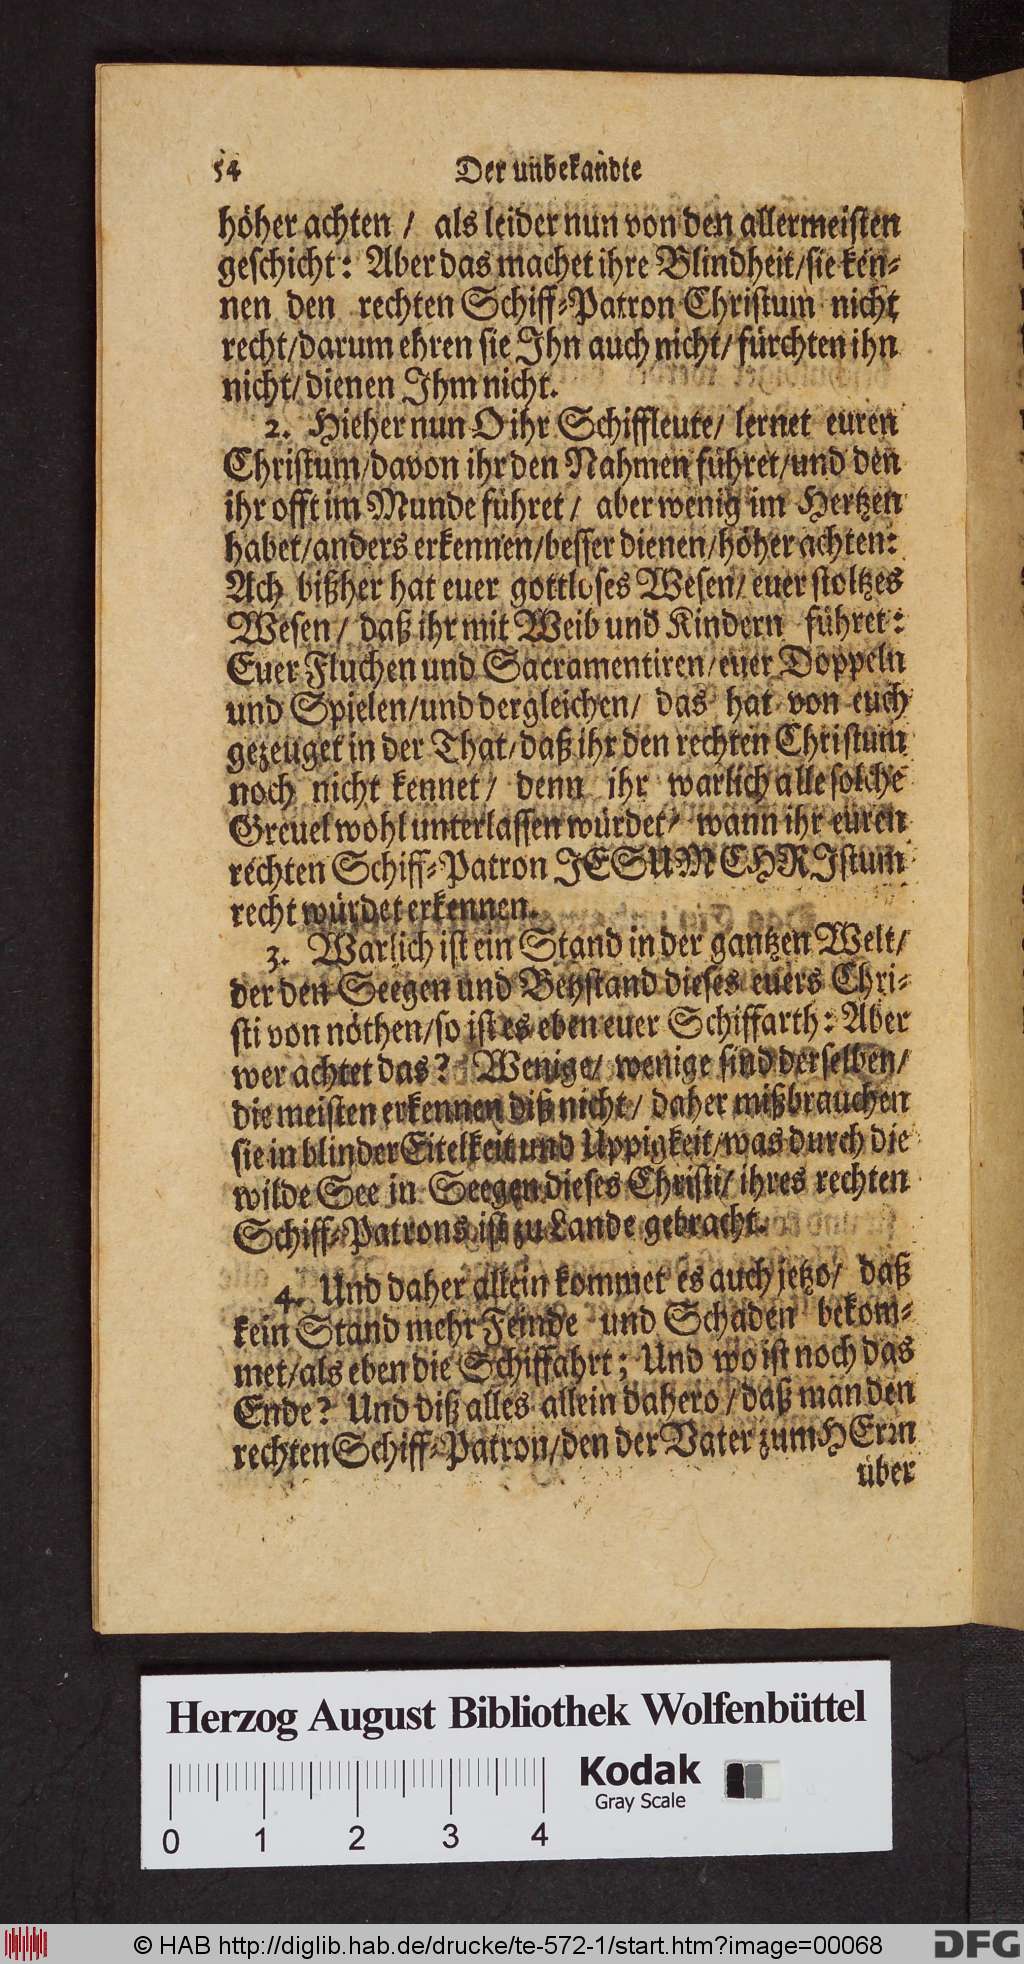 54 Der unbekañdte
höher achten / als leider nun von den allermeisten
geschicht: Aber das machet ihre Blindheit/sie ken-
nen den rechten Schiff-Patron Christum nicht
recht/darum ehren sie Ihn auch nicht/ fürchten ihn
nicht/ dienen Ihm nicht.
2. Hieher nun O ihr Schiffleute/ lernet euren
Christum/davon ihr den Nahmen führet/und den
ihr offt im Munde führet / aber wenig im Hertzen
habet/anders erkennen/besser dienen/höher achten:
Ach bißher hat euer gottloses Wesen/ euer stoltzes
Wesen / daß ihr mit Weib und Kindern führet:
Euer Fluchen und Sacramentiren/euer Doppeln
und Spielen/und dergleichen/ das hat von euch
gezeuget in der That/daß ihr den rechten Christum
noch nicht kennet / denn ihr warlich alle solche
Greuel wohl unterlassen würdet/ wann ihr euren
rechten Schiff-Patron JESUM CHRIstum
recht würdet erkennen.
3. Warlich ist ein Stand in der gantzen Welt/
der den Seegen und Beystand dieses euers Chri-
sti von nöthen/so ist es eben euer Schiffarth: Aber
wer achtet das? Wenige/ wenige sind derselben/
die meisten erkennen diß nicht/ daher mißbrauchen
sie in blinder Eitelkeit und Uppigkeit/was durch die
wilde See in Seegen dieses Christi/ ihres rechten
Schiff-Patrons ist zu Lande gebracht.
4. Und daher allein kommet es auch jetzo/ daß
kein Stand mehr Feinde und Schaden bekom-
met/als eben die Schiffahrt; Und wo ist noch das
Ende? Und diß alles allein dahero / daß man den
rechten Schiff-Patron/den der Vater zum HErrn
über
Herzog August Bibliothek Wolfenbüttel
Kodak
Gray Scale
0 1 2 3 4
© HAB http://diglib.hab.de/drucke/te-572-1/start.htm?image=00068
DFG